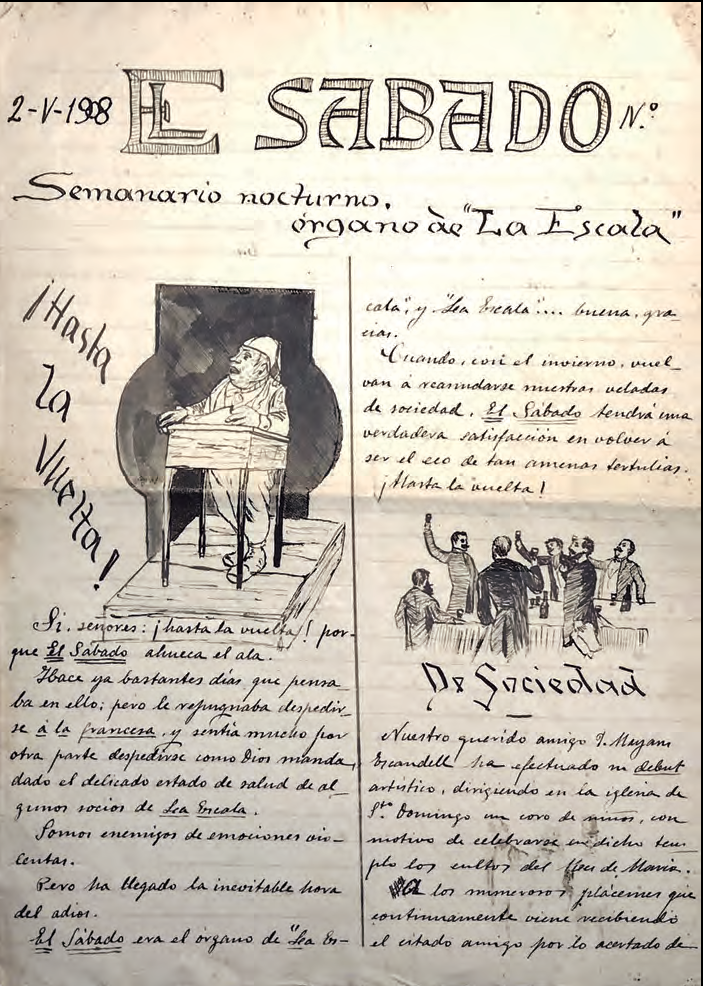 2-V-1908 EL SABADO N.º
Semanario nocturno,
órgano de "La Escala"
¡Hasta
la
Vuelta!
Si, señores: ¡hasta la vuelta! por-
que El Sábado ahueca el ala.
Hace ya bastantes días que pensa-
ba en ello; pero le repugnaba despedir-
se á la francesa, y sentía mucho por
otra parte despedirse como Dios manda,
dado el delicado estado de salud de al-
gunos socios de La Escala.
Somos enemigos de emociones vio-
lentas.
Pero ha llegado la inevitable hora
del adios.
El Sábado era el órgano de "La Es-
cala", y "La Escala".... buena, gra-
cias.
Cuando, con el invierno, vuel-
van á reanudarse nuestras veladas
de sociedad, El Sábado tendrá una
verdadera satisfacción en volver á
ser el eco de tan amenas tertulias.
¡Hasta la vuelta!
De Sociedad
Nuestro querido amigo J. Mayans
Escandell ha efectuado su debut
artístico, dirigiendo en la iglesia de
Sto Domingo un coro de niños, con
motivo de celebrarse en dicho tem-
plo los cultos del Mes de María.
A los numerosos plácemes que
continuamente viene recibiendo
el citado amigo por lo acertado de